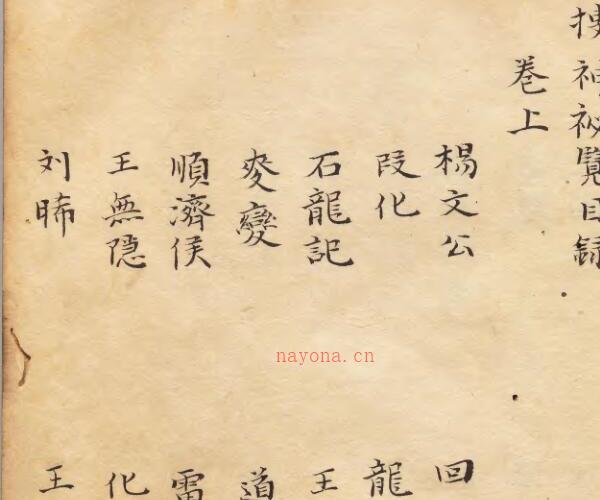 搜神祕覽目録
卷上
楊文公
回
段化
龍
石龍記
王
麥變
道
順濟侯
雷
王無隠
化
刘晞
王
nayona.cn